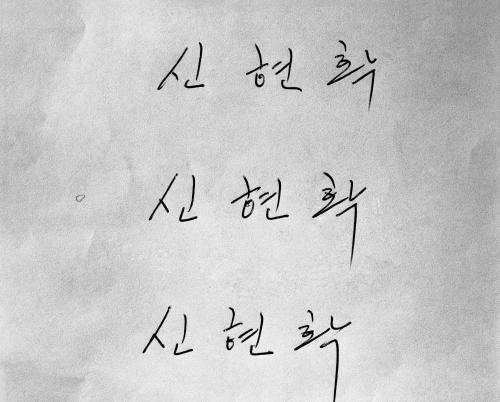 신 현 확
신 현 확
신 현 확